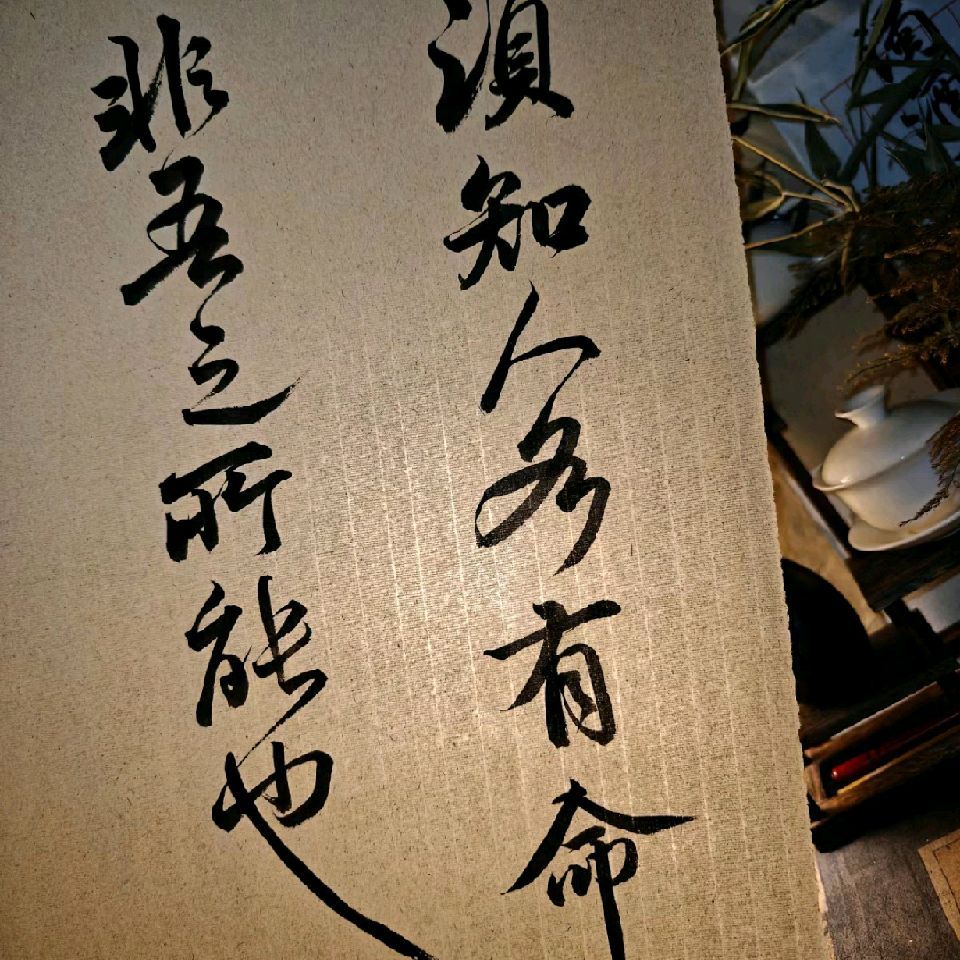 須知人各有命
非吾之所能也